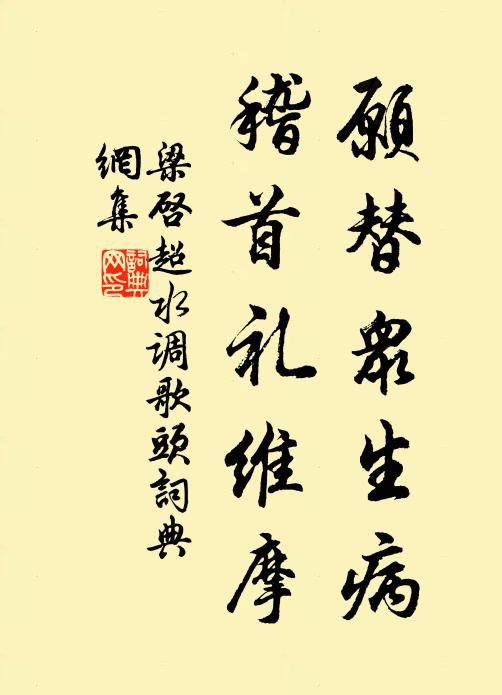 願替眾生病
稽首礼維摩
梁啓超水调歌頭詞典
網集
詞典
网印